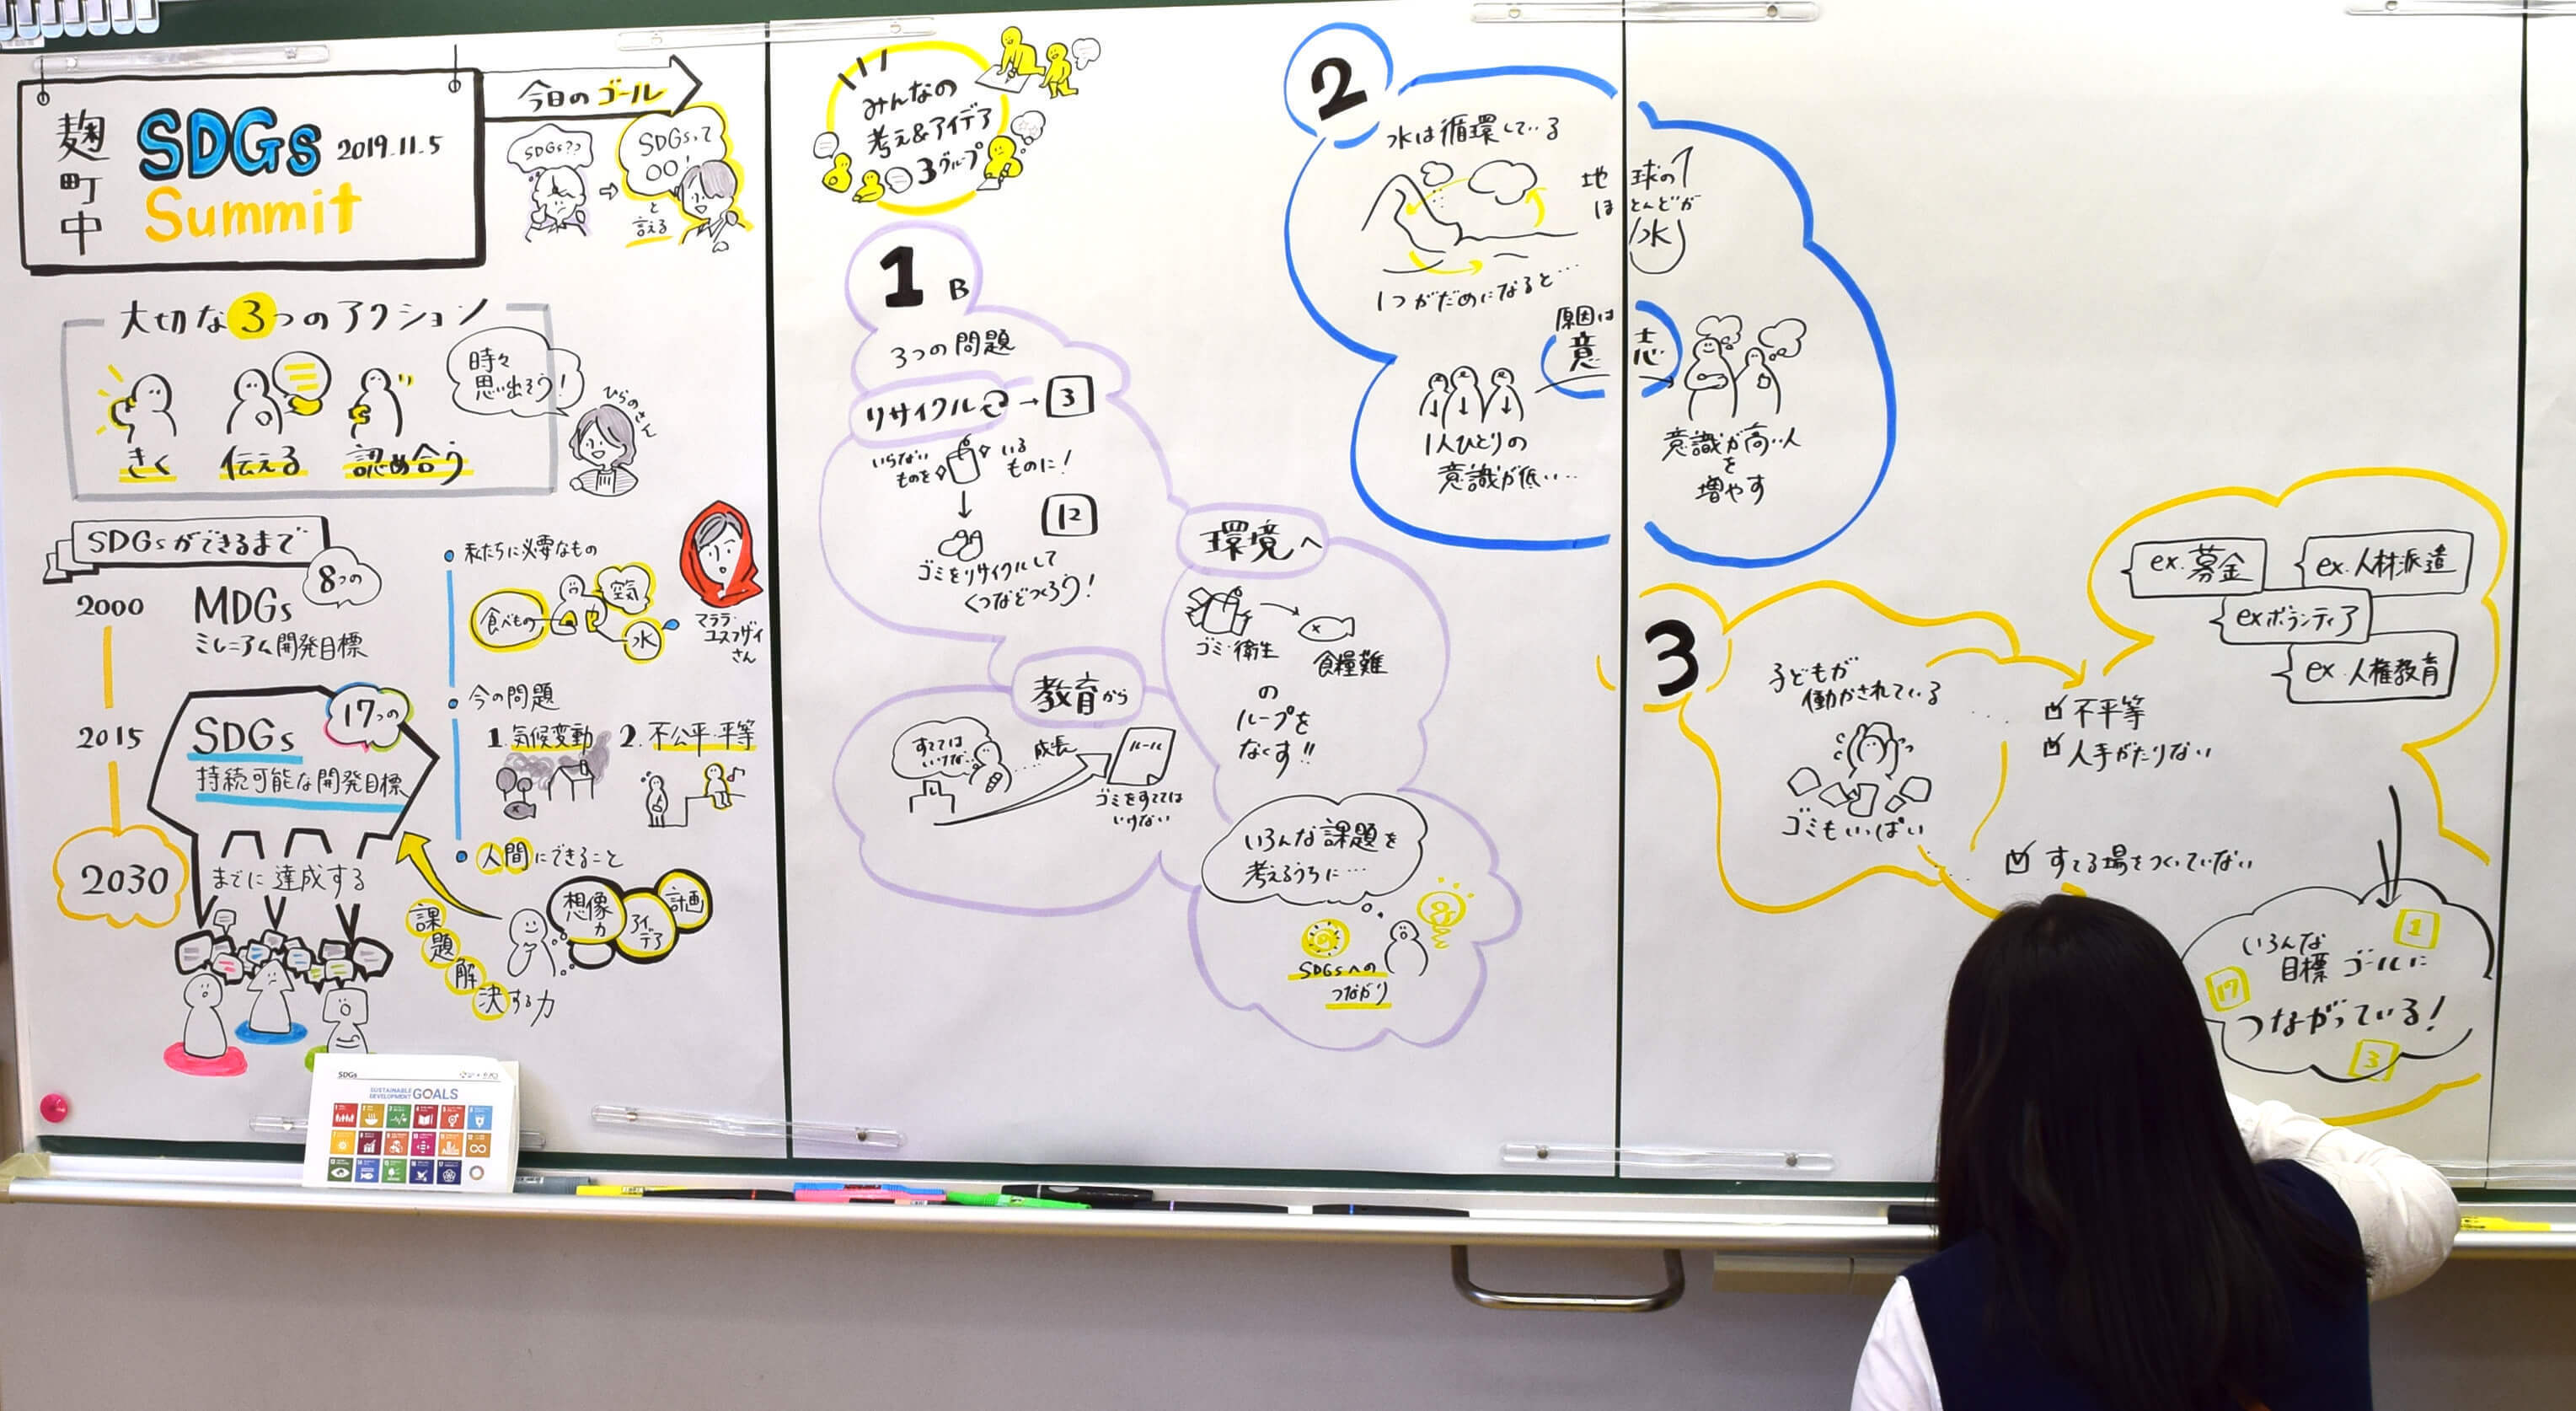 麹町中
SDGs 2019.11.5
Summit
今日のゴール
SDGs??
SDGsって
○○!
と
言える
大切な3つのアクション
きく
伝える
認め合う
時々
思い出そう!
ひらのさん
SDGsができるまで
2000
8つの
MDGs
ミレニアム開発目標
2015
17つの
SDGs
持続可能な開発目標
2030
までに達成する
私たちに必要なもの
食べもの
空気
水
マララ・
ユスフザイ
さん
今の問題
1. 気候変動
2. 不公平・平等
人間にできること
想像力
アイデア
計画
課題解決する力
SDGs
SUSTAINABLE
DEVELOPMENT GOALS
みんなの
考え&アイデア
3グループ
1 B
3つの問題
リサイクル → 3
いらない
ものを
いる
ものに!
12
ゴミをリサイクルして
くつなどつくろう!
教育から
すててはいけない
成長
ルール
ゴミをすてては
いけない
環境へ
ゴミ・衛生
食糧難
の
ループを
なくす!!
いろんな課題を
考えるうちに…
SDGsへの
つながり
2
水は循環している
地球の
ほとんどが
水
1つがだめになると…
原因は
意志
1人ひとりの
意識が低い…
意識が高い人
を
増やす
3
子どもが
働かされている
ゴミもいっぱい
不平等
人手がたりない
すてる場をつくっていない
ex.募金
ex.人材派遣
exボランティア
ex.人権教育
1
いろんな
目標 ゴールに
17
つながっている!
3